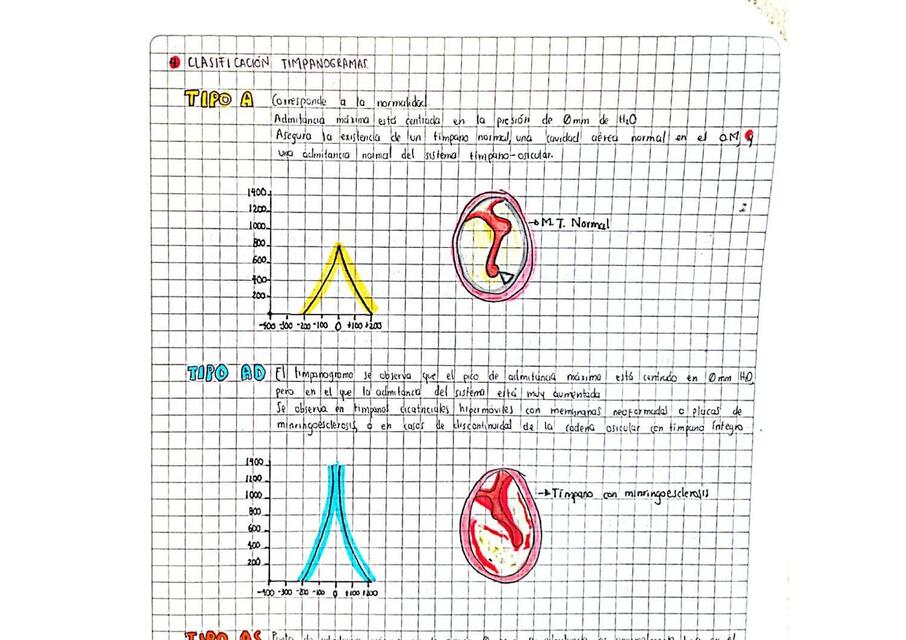 CLASIFICACIÓN TIMPANOGRAMAS
TIPO A Corresponde a la normalidad
Admitancia máxima está centrada en la presión de 0mm de H2O
Asegura la existencia de un tímpano normal, una cavidad aérea normal en el O.M, y
una admitancia normal del sistema tímpano-osicular.
1400
1200
1000
800
600
400
200
-400 -300 -200 -100 0 +100 +200
M.T. Normal
TIPO AD El timpanograma se observa que el pico de admitancia máxima está centrado en 0mm H2O,
pero en el que la admitancia del sistema está muy aumentada
Se observa en tímpanos cicatriciales hipermóviles con membranas neoformadas o placas de
minringoesclerosis, o en casos de discontinuidad de la cadena osicular con tímpano íntegro
1400
1100
1000
800
600
400
200
-400 -300 -200 -100 0 +100 +200
Tímpano con minringoesclerosis
TIPO AS